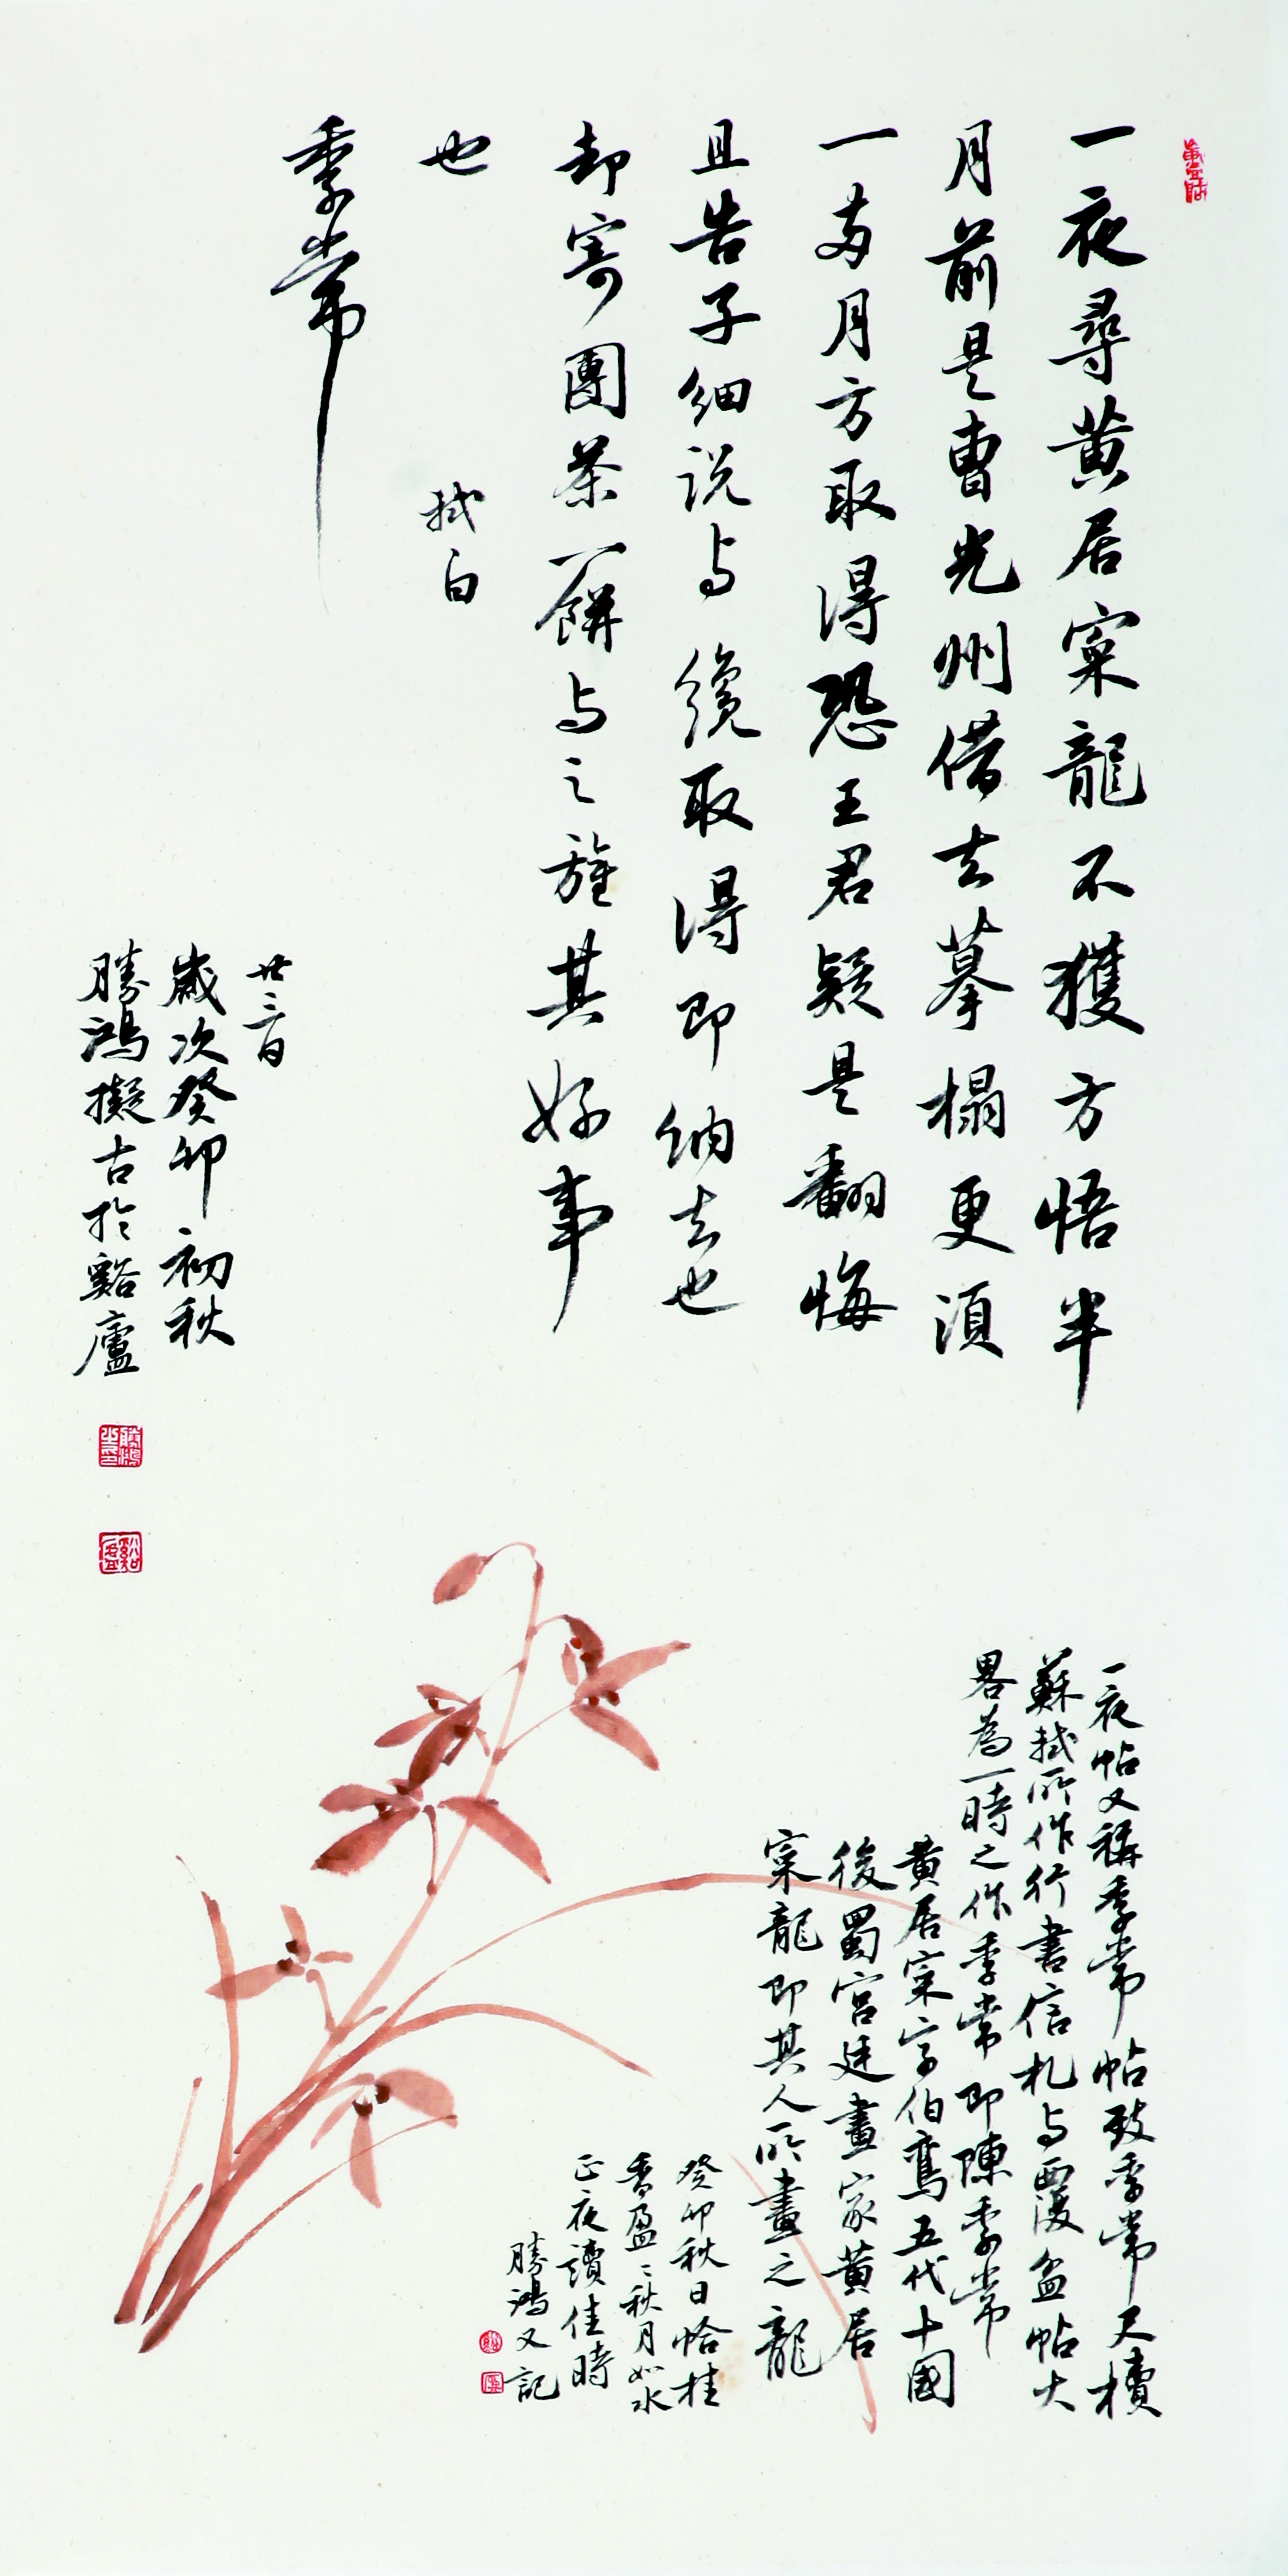 一夜尋黄居寀龍不獲方悟半
月前是曹光州借去摹榻更湏
一两月方取得恐王君疑是翻悔
且告子細説与纔取得即納去也
却寄團茶一餅与之旌其好事
也
軾白
季常
廿三日
歲次癸卯初秋
勝鴻擬古於谿廬
勝鴻
谿廬
一夜帖又稱季常帖致季常尺牘
蘇軾所作行書信札与覆盆帖大
畧為一時之作季常即陳季常
黄居寀字伯鸞五代十國
後蜀宫廷畫家黄居
寀龍即其人所畫之龍
癸卯秋日恰桂
香盈〻秋月如水
正夜讀佳時
勝鴻又記